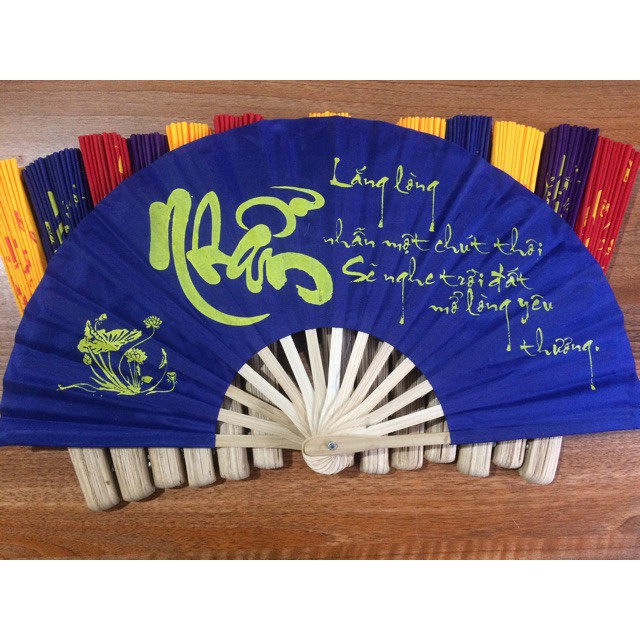 Nhẫn
Lắng lòng
nhẫn một chút thôi
Sẽ nghe trời đất
mở lòng yêu
thương.